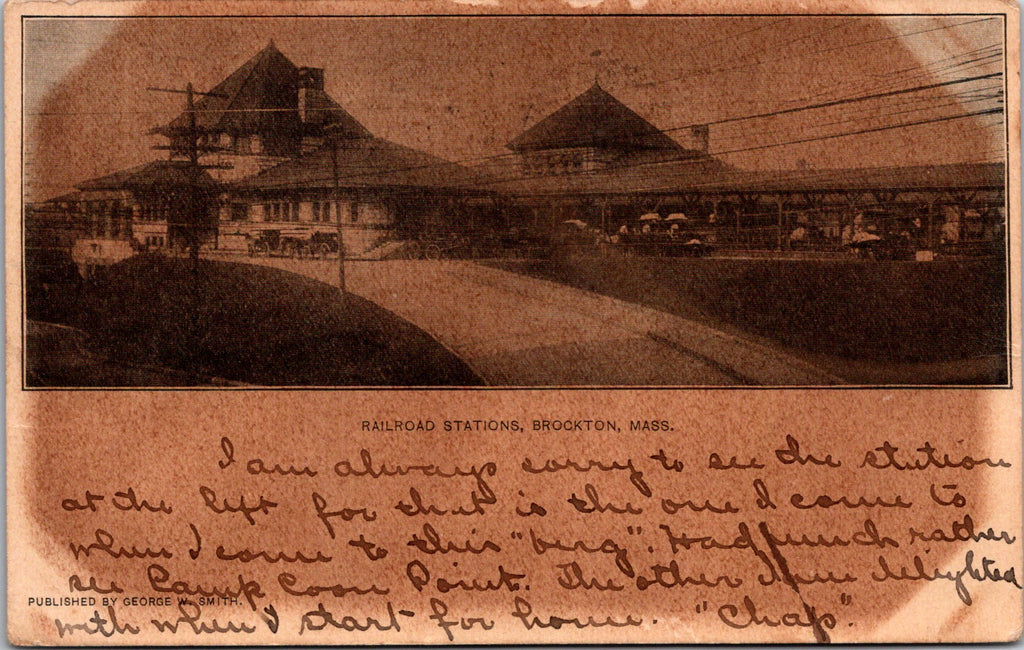 RAILROAD STATIONS, BROCKTON, MASS.
I am always sorry to see the station
at the left for that is the one I come to
when I come to this "burg". Had much rather
see Camp Coon Point. The other I am delighted
PUBLISHED BY GEORGE W. SMITH.
with when I start for home. "Chap".